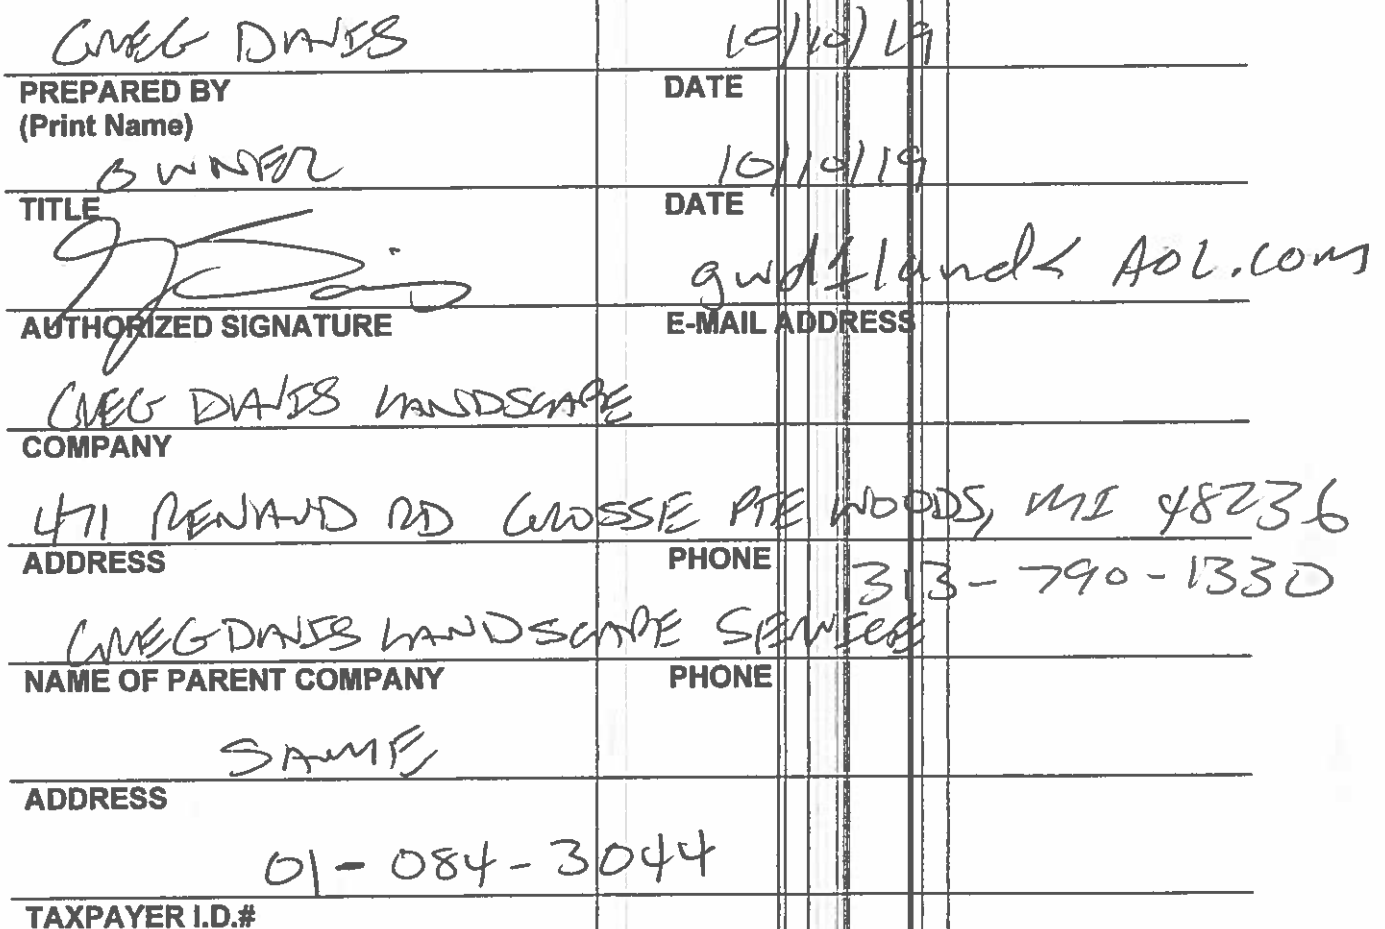 GREG DAVIS 10/10/19
PREPARED BY DATE
(Print Name)
OWNER 10/10/19
TITLE DATE
gwd1land< AOL.com
AUTHORIZED SIGNATURE E-MAIL ADDRESS
GREG DAVIS LANDSCAPE
COMPANY
471 RENAUD RD GROSSE PTE WOODS, MI 48236
ADDRESS PHONE 313-790-1330
GREG DAVIS LANDSCAPE SERVICE
NAME OF PARENT COMPANY PHONE
SAME
ADDRESS
01-084-3044
TAXPAYER I.D.#